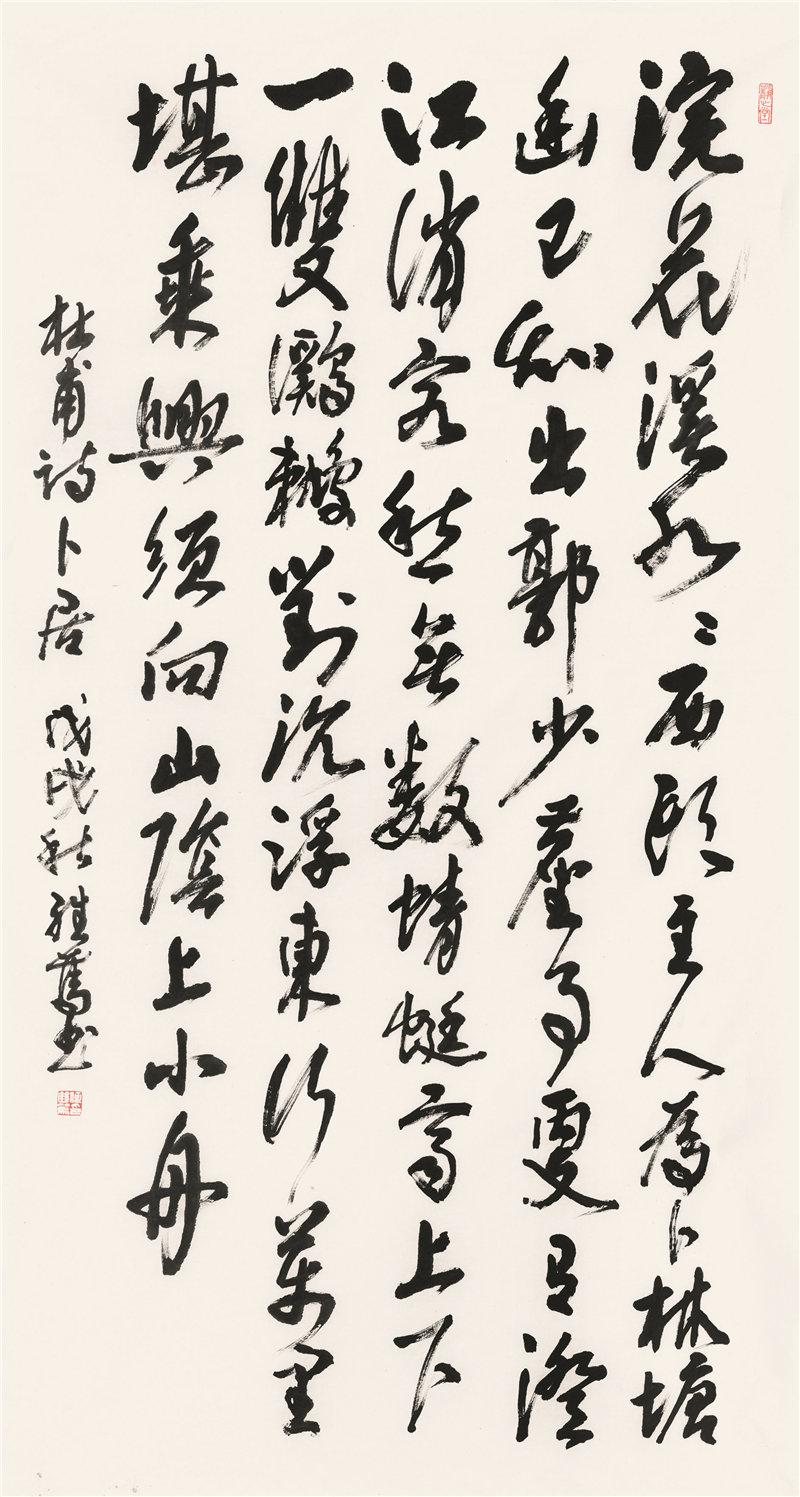 浣花溪水〻西頭主人為卜林塘
幽已知出郭少塵事更有澄
江消客愁無數蜻蜓齊上下
一雙鸂鶒對沉浮東行萬里
堪乘興須向山陰上小舟
杜甫詩卜居 戊戌秋 書